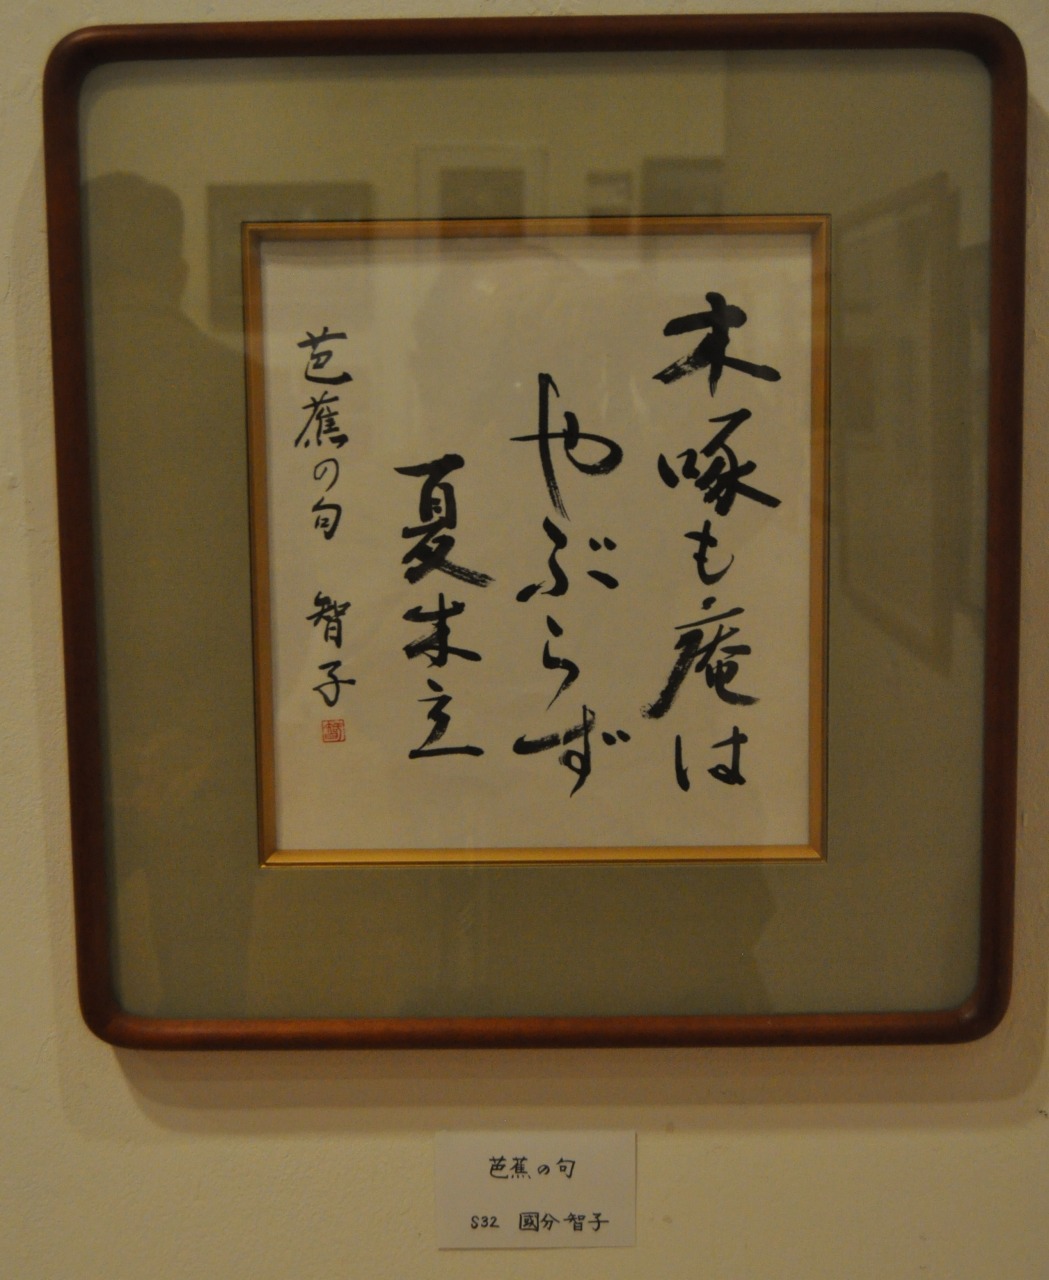 木啄も庵は
やぶらず
夏木立
芭蕉の句 智子
芭蕉の句
S32 國分智子